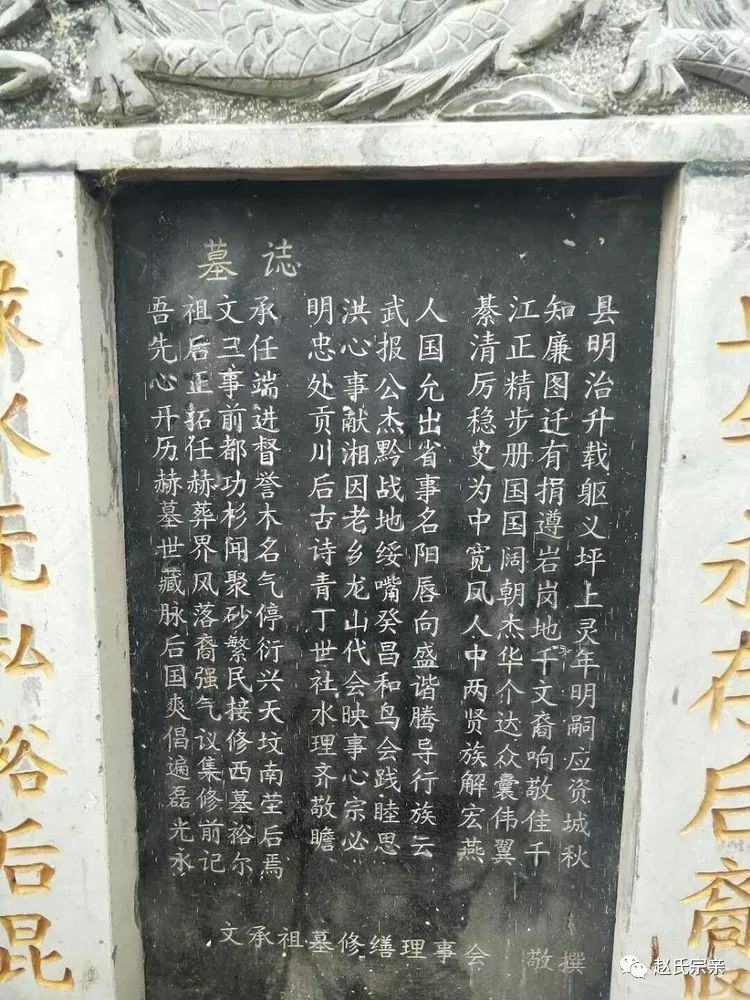 墓誌
吾祖文承 明洪武人 綦江知县
先后三任 忠心报国 清正廉明
心正事端 处事公允 厉精图治
开拓前进 贡献杰出 稳步迁升
历任都督 川湘黔省 史册有载
赫赫功誉 后因战事 为国捐躯
墓葬杉木 古老地名 中国遵义
世界闻名 诗乡绥阳 宽阔岩坪
藏风聚气 青龙嘴唇 凤朝岗上
脉落砂停 丁山癸向 人杰地灵
后裔繁衍 世代昌盛 中华千年
国强民兴 社会和谐 两介文明
爽气接天 水映鸟腾 贤达裔嗣
倡议修坟 理事会导 族众响应
遍集西南 齐心践行 解囊敬资
磊修墓茔 敬宗睦族 宏伟佳城
光前裕后 瞻必思云 燕翼千秋
永记尔焉
文承祖墓修缮理事会 敬撰
永存后裔
水无私裕后昆
赵氏宗亲